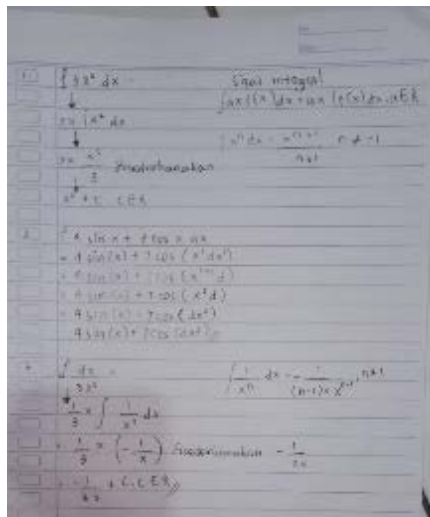 ∫ 3x² dx = Sifat integral
↓ ∫ax f(x) dx = ax ∫f(x) dx, a ∈ R
3x ∫x² dx
↓ ∫xⁿ dx = xⁿ⁺¹/n+1 n ≠ -1
3x x³/3 Sederhanakan
↓
x³ + C C ∈ R
4 sin x + 7 cos x dx
= 4 sin(x) + 7 cos (x¹dx¹)
= 4 sin(x) + 7 cos (x¹⁺¹d)
= 4 sin(x) + 7 cos (x²d)
= 4 sin(x) + 7 cos (dx²)
4 sin(x) + 7 cos (dx²)
∫ dx/3x² = ∫ 1/xⁿ dx = - 1/(n-1)x xⁿ⁻¹, n≠1
↓
1/3 x ∫ 1/x² dx
= 1/3 x (- 1/x) Sederhanakan - 1/3x
= -1/3x + C, C ∈ R //